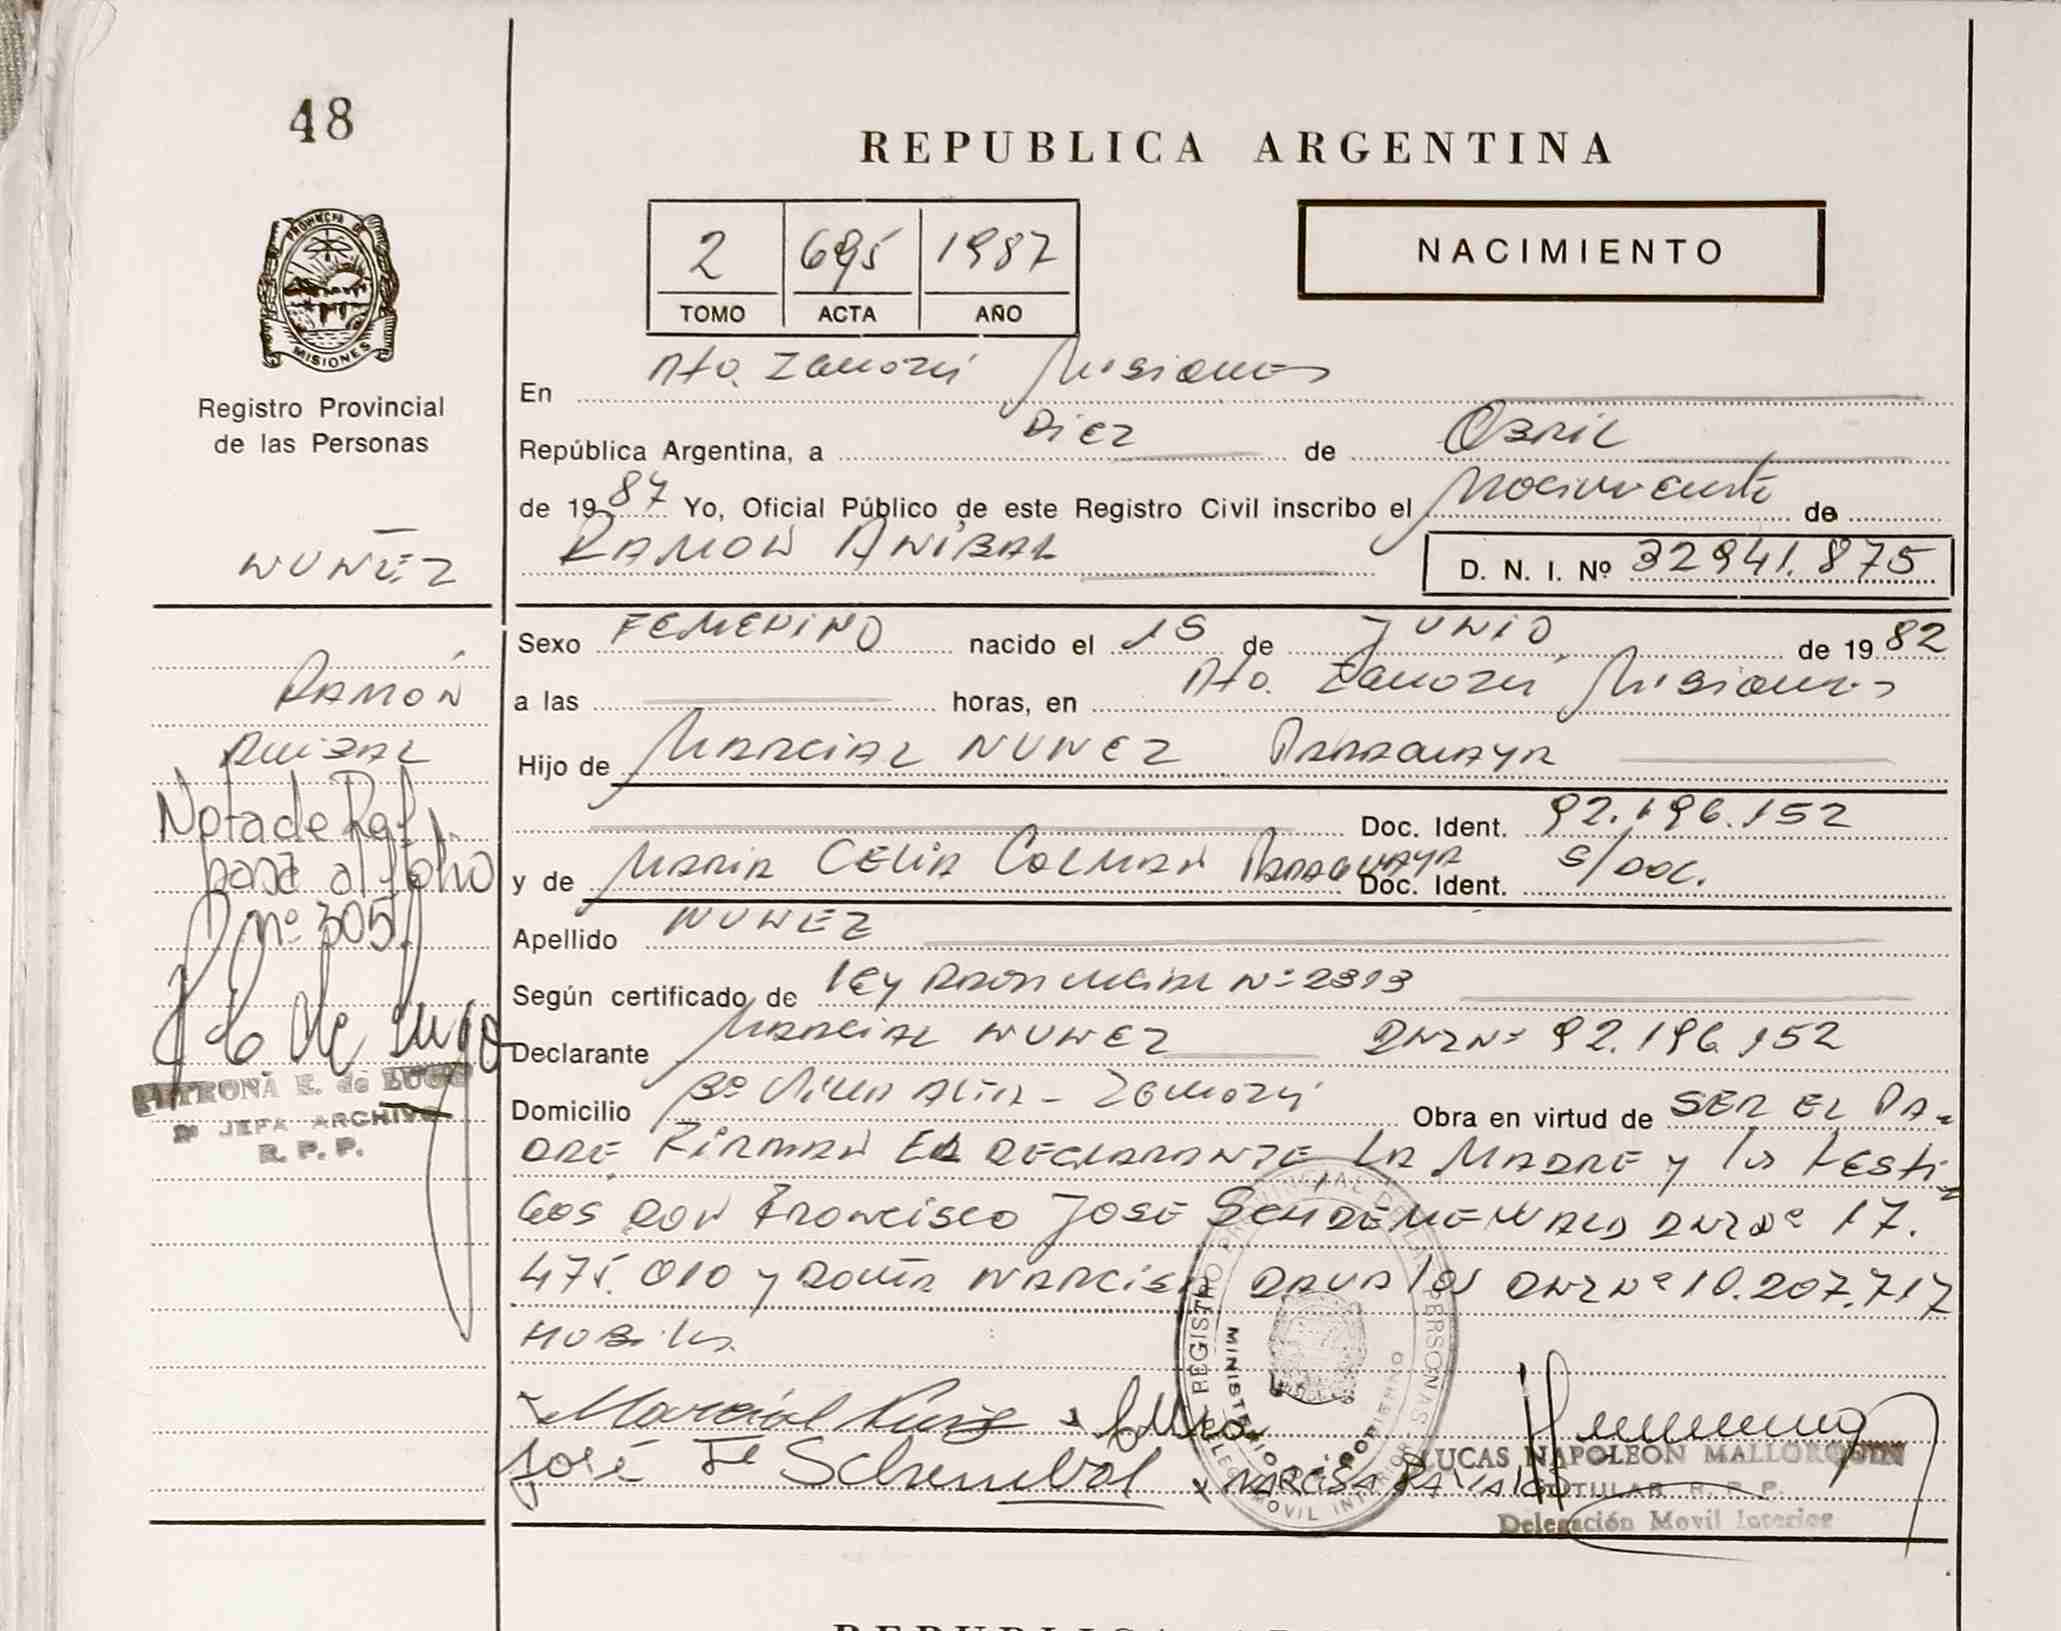 48
REPUBLICA ARGENTINA
PROVINCIA DE
MISIONES
Registro Provincial
de las Personas
2 695 1987
TOMO ACTA AÑO
NACIMIENTO
En Pto. Zamorú Misiones
República Argentina, a Diez de Abril
de 1987 Yo, Oficial Público de este Registro Civil inscribo el Nacimiento de
RAMON ANIBAL
D. N. I. Nº 32941.875
NUÑEZ
RAMÓN
ANIBAL
Nota de Ref.
pasa al folio
nº 305
P E de Lugo
PETRONA E. de LUGO
JEFA ARCHIVO
R. P. P.
Sexo FEMENINO nacido el 15 de JUNIO de 1982
a las horas, en Pto. Zamorú Misiones
Hijo de MARCIAL NUNEZ PARAGUAYA
Doc. Ident. 92.196.152
y de MARIA CELIA COLMAN PARAGUAYA Doc. Ident. S/DOC.
Apellido NUNEZ
Según certificado de ley Nº 2393
Declarante MARCIAL NUNEZ DNI Nº 92.196.152
Domicilio Bº Villa ALTA - Zamorú Obra en virtud de SER EL PA-
DRE, FIRMAN EL DECLARANTE LA MADRE y los testi-
GOS DON Francisco JOSE DNI Nº 17.
475.010 y DOÑA NARCISA DAVALOS DNI Nº 10.207.717
HABILES
Marcial
José Fe
NARCISA DAVALOS
REGISTRO PROVINCIAL DE LAS PERSONAS
MINISTERIO DE GOBIERNO
DELEG. MOVIL INTERIOR
LUCAS NAPOLEON MALLORQUIN
TITULAR R. P. P.
Delegación Movil Interior